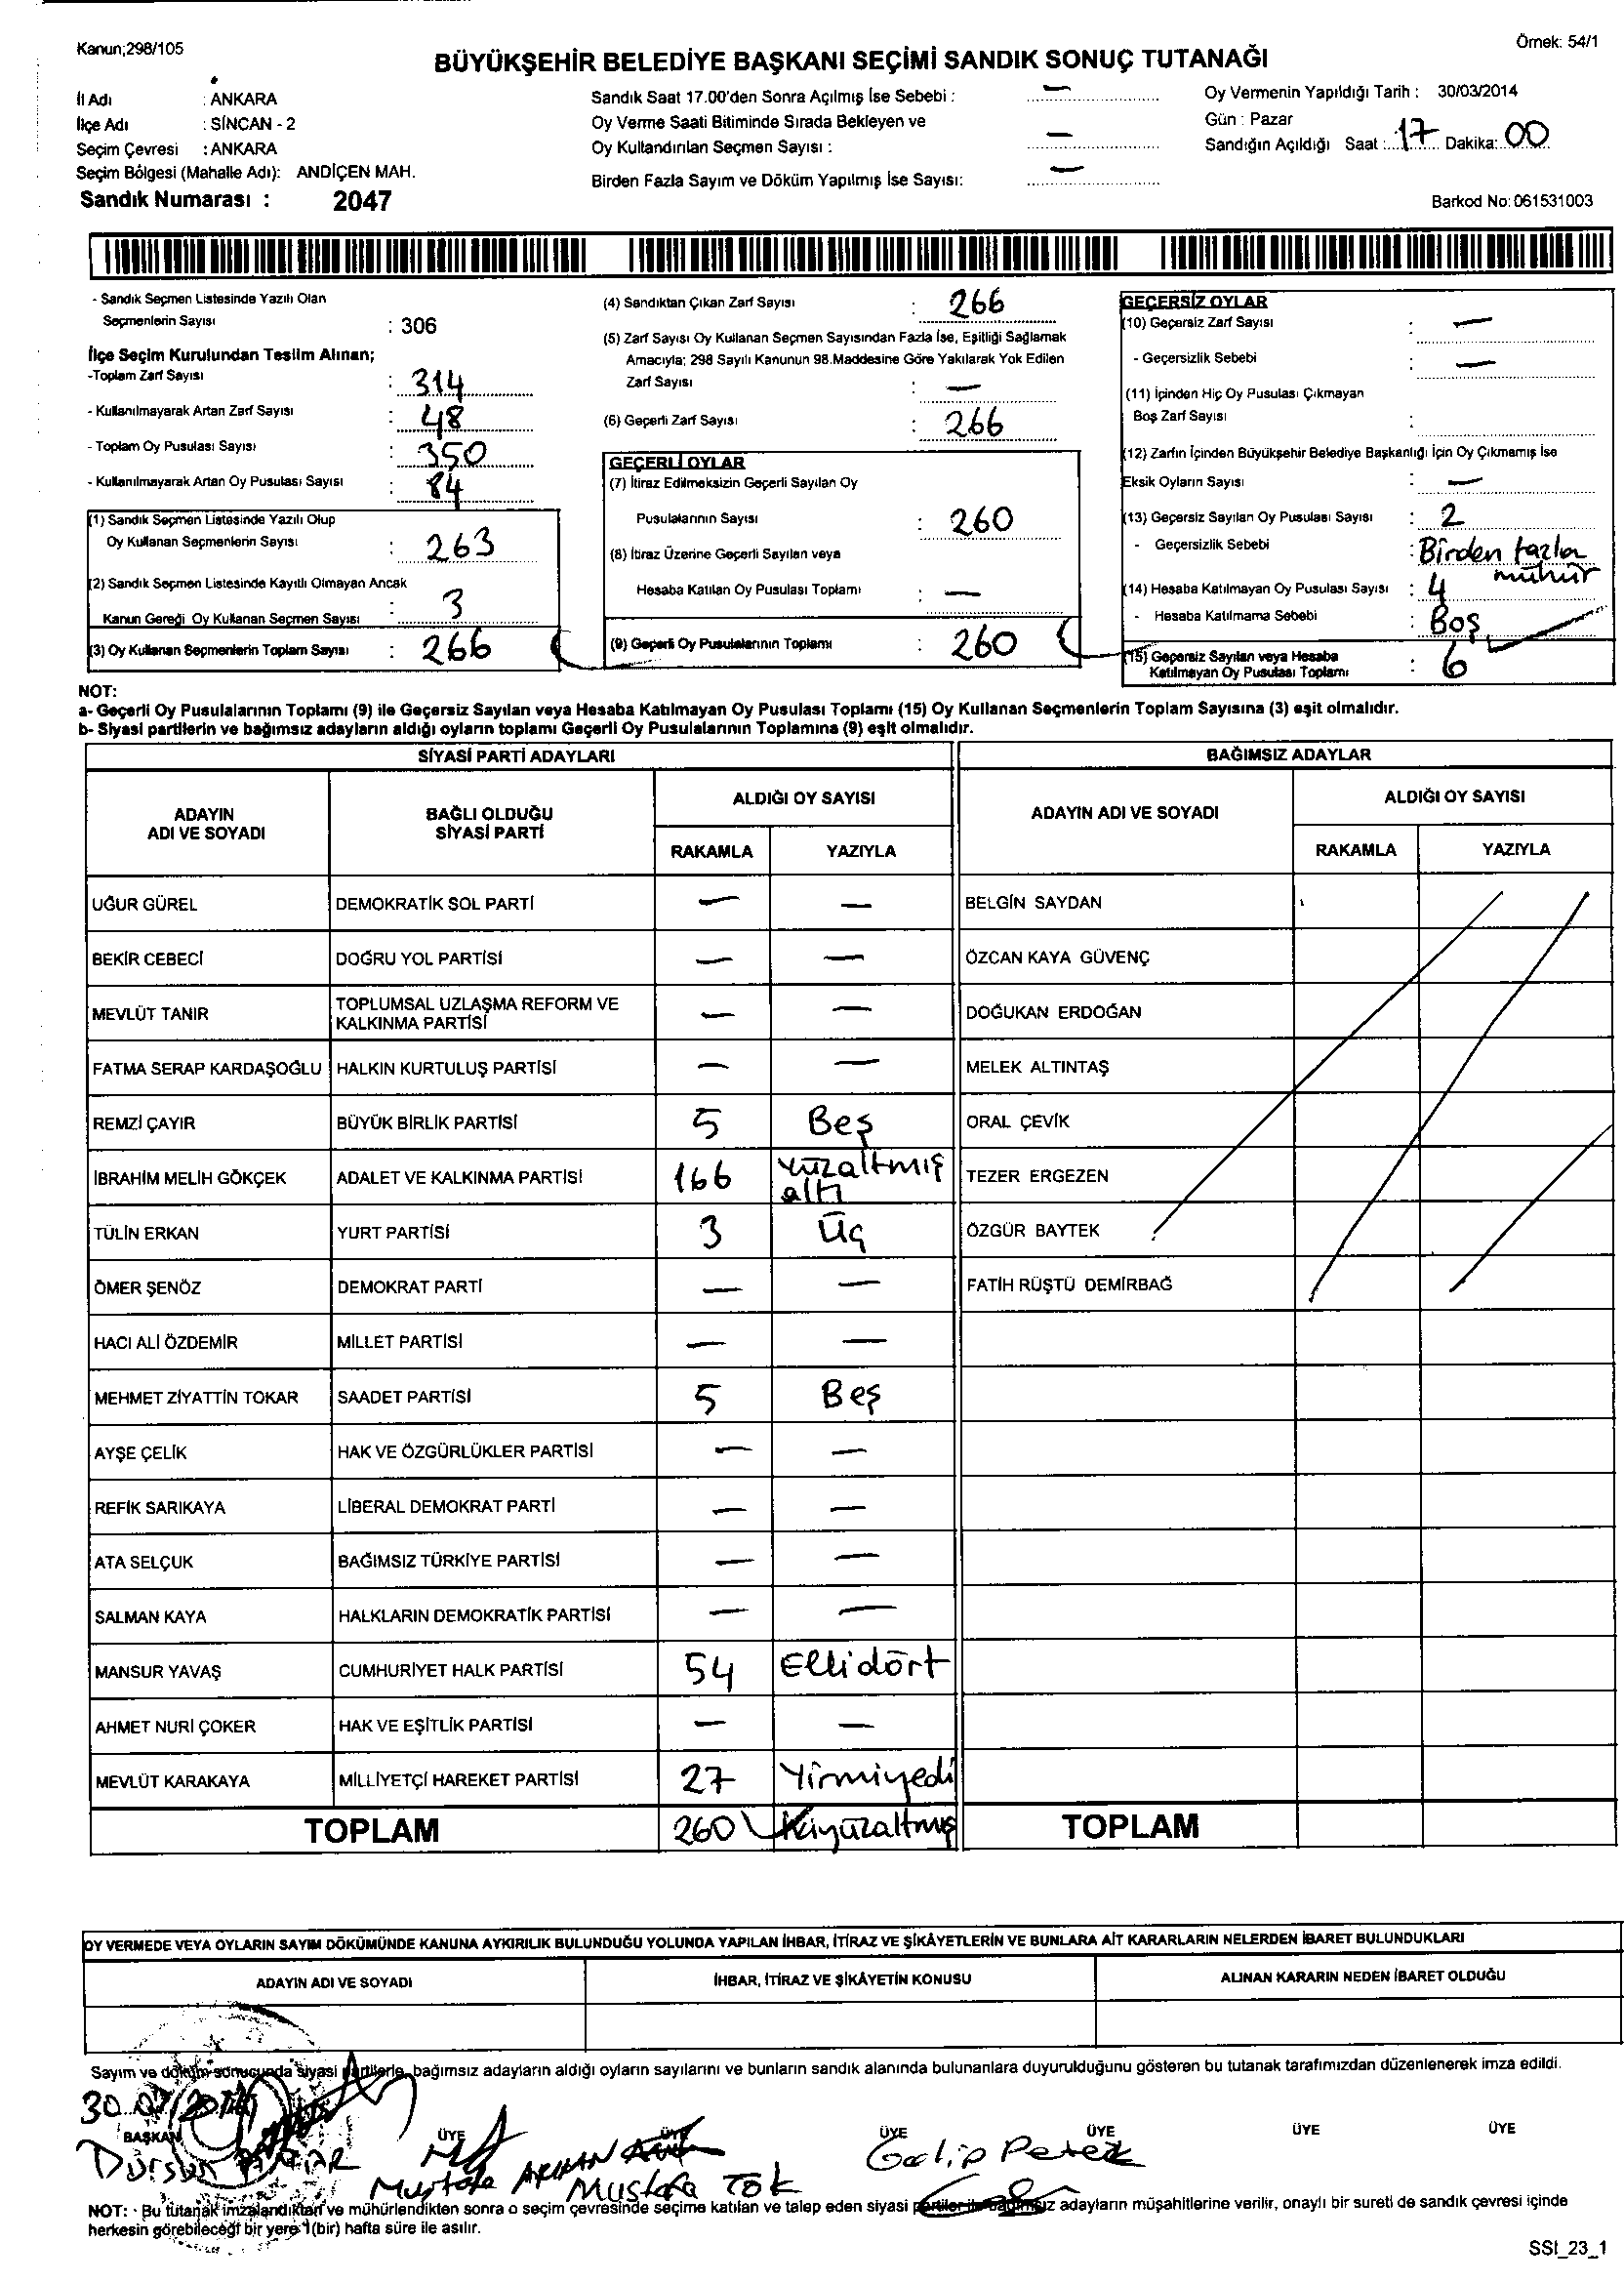 Kanun;298/105
Örnek: 54/1
BÜYÜKŞEHİR BELEDİYE BAŞKANI SEÇİMİ SANDIK SONUÇ TUTANAĞI
İl Adı : ANKARA
İlçe Adı : SİNCAN - 2
Seçim Çevresi : ANKARA
Seçim Bölgesi (Mahalle Adı): ANDİÇEN MAH.
Sandık Numarası : 2047
Sandık Saat 17.00'den Sonra Açılmış İse Sebebi : —
Oy Verme Saati Bitiminde Sırada Bekleyen ve
Oy Kullandırılan Seçmen Sayısı : —
Birden Fazla Sayım ve Döküm Yapılmış İse Sayısı: —
Oy Vermenin Yapıldığı Tarih : 30/03/2014
Gün : Pazar
Sandığın Açıldığı Saat : 17 Dakika: 00
Barkod No: 061531003
- Sandık Seçmen Listesinde Yazılı Olan
Seçmenlerin Sayısı : 306
İlçe Seçim Kurulundan Teslim Alınan;
-Toplam Zarf Sayısı : 314
- Kullanılmayarak Artan Zarf Sayısı : 48
- Toplam Oy Pusulası Sayısı : 350
- Kullanılmayarak Artan Oy Pusulası Sayısı : 84
(1) Sandık Seçmen Listesinde Yazılı Olup
Oy Kullanan Seçmenlerin Sayısı : 263
(2) Sandık Seçmen Listesinde Kayıtlı Olmayan Ancak
Kanun Gereği Oy Kullanan Seçmen Sayısı : 3
(3) Oy Kullanan Seçmenlerin Toplam Sayısı : 266
(4) Sandıktan Çıkan Zarf Sayısı : 266
(5) Zarf Sayısı Oy Kullanan Seçmen Sayısından Fazla İse, Eşitliği Sağlamak
Amacıyla; 298 Sayılı Kanunun 98.Maddesine Göre Yakılarak Yok Edilen
Zarf Sayısı : —
(6) Geçerli Zarf Sayısı : 266
GEÇERLİ OYLAR
(7) İtiraz Edilmeksizin Geçerli Sayılan Oy
Pusulalarının Sayısı : 260
(8) İtiraz Üzerine Geçerli Sayılan veya
Hesaba Katılan Oy Pusulası Toplamı : —
(9) Geçerli Oy Pusulalarının Toplamı : 260
GEÇERSİZ OYLAR
(10) Geçersiz Zarf Sayısı : —
- Geçersizlik Sebebi : —
(11) İçinden Hiç Oy Pusulası Çıkmayan
Boş Zarf Sayısı :
(12) Zarfın İçinden Büyükşehir Belediye Başkanlığı İçin Oy Çıkmamış İse
Eksik Oyların Sayısı : —
(13) Geçersiz Sayılan Oy Pusulası Sayısı : 2
- Geçersizlik Sebebi : Birden fazla
mühür
(14) Hesaba Katılmayan Oy Pusulası Sayısı : 4
- Hesaba Katılmama Sebebi : Boş
(15) Geçersiz Sayılan veya Hesaba
Katılmayan Oy Pusulası Toplamı : 6
NOT:
a- Geçerli Oy Pusulalarının Toplamı (9) ile Geçersiz Sayılan veya Hesaba Katılmayan Oy Pusulası Toplamı (15) Oy Kullanan Seçmenlerin Toplam Sayısına (3) eşit olmalıdır.
b- Siyasi partilerin ve bağımsız adayların aldığı oyların toplamı Geçerli Oy Pusulalarının Toplamına (9) eşit olmalıdır.
SİYASİ PARTİ ADAYLARI
BAĞIMSIZ ADAYLAR
ADAYIN
ADI VE SOYADI
BAĞLI OLDUĞU
SİYASİ PARTİ
ALDIĞI OY SAYISI
RAKAMLA YAZIYLA
ADAYIN ADI VE SOYADI
ALDIĞI OY SAYISI
RAKAMLA YAZIYLA
UĞUR GÜREL DEMOKRATİK SOL PARTİ — — BELGİN SAYDAN
BEKİR CEBECİ DOĞRU YOL PARTİSİ — — ÖZCAN KAYA GÜVENÇ
MEVLÜT TANIR TOPLUMSAL UZLAŞMA REFORM VE
KALKINMA PARTİSİ — — DOĞUKAN ERDOĞAN
FATMA SERAP KARDAŞOĞLU HALKIN KURTULUŞ PARTİSİ — — MELEK ALTINTAŞ
REMZİ ÇAYIR BÜYÜK BİRLİK PARTİSİ 5 Beş ORAL ÇEVİK
İBRAHİM MELİH GÖKÇEK ADALET VE KALKINMA PARTİSİ 166 Yüzaltmış
altı TEZER ERGEZEN
TÜLİN ERKAN YURT PARTİSİ 3 Üç ÖZGÜR BAYTEK
ÖMER ŞENÖZ DEMOKRAT PARTİ — — FATİH RÜŞTÜ DEMİRBAĞ
HACI ALİ ÖZDEMİR MİLLET PARTİSİ — —
MEHMET ZİYATTİN TOKAR SAADET PARTİSİ 5 Beş
AYŞE ÇELİK HAK VE ÖZGÜRLÜKLER PARTİSİ — —
REFİK SARIKAYA LİBERAL DEMOKRAT PARTİ — —
ATA SELÇUK BAĞIMSIZ TÜRKİYE PARTİSİ — —
SALMAN KAYA HALKLARIN DEMOKRATİK PARTİSİ — —
MANSUR YAVAŞ CUMHURİYET HALK PARTİSİ 54 Ellidört
AHMET NURİ ÇOKER HAK VE EŞİTLİK PARTİSİ — —
MEVLÜT KARAKAYA MİLLİYETÇİ HAREKET PARTİSİ 27 Yirmiyedi
TOPLAM 260 İkiyüzaltmış TOPLAM
OY VERMEDE VEYA OYLARIN SAYIM DÖKÜMÜNDE KANUNA AYKIRILIK BULUNDUĞU YOLUNDA YAPILAN İHBAR, İTİRAZ VE ŞİKÂYETLERİN VE BUNLARA AİT KARARLARIN NELERDEN İBARET BULUNDUKLARI
ADAYIN ADI VE SOYADI İHBAR, İTİRAZ VE ŞİKÂYETİN KONUSU ALINAN KARARIN NEDEN İBARET OLDUĞU
Sayım ve döküm sonucunda siyasi partilerle, bağımsız adayların aldığı oyların sayılarını ve bunların sandık alanında bulunanlara duyurulduğunu gösteren bu tutanak tarafımızdan düzenlenerek imza edildi.
BAŞKAN ÜYE ÜYE ÜYE ÜYE ÜYE ÜYE
Dursun Mustafa ARIKAN Mustafa TOK Galip Petek
NOT: - Bu tutanak imzalandıktan ve mühürlendikten sonra o seçim çevresinde seçime katılan ve talep eden siyasi partiler ile bağımsız adayların müşahitlerine verilir, onaylı bir sureti de sandık çevresi içinde
herkesin görebileceği bir yere 1(bir) hafta süre ile asılır.
SSI_23_1